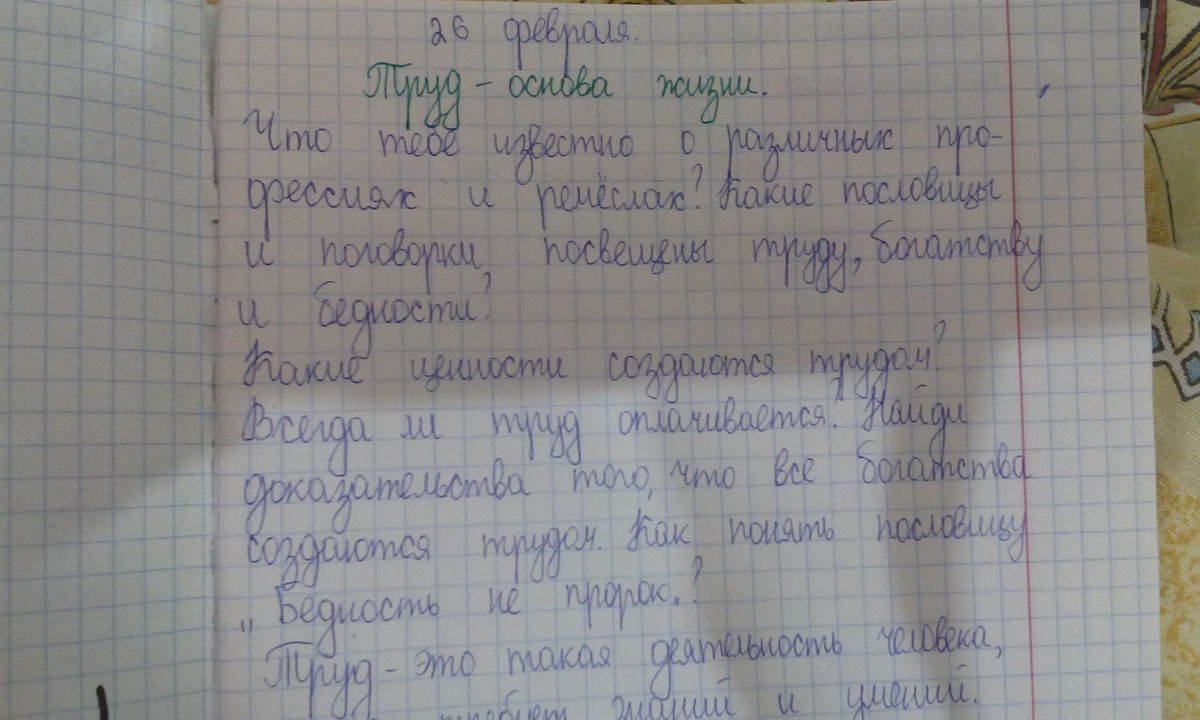 26 февраля.
Труд - основа жизни.
Что тебе известно о различных про-
фессиях и ремёслах? Какие пословицы
и поговорки, посвещены труду, богатству
и бедности?
Какие ценности создаются трудом?
Всегда ли труд оплачивается? Найди
доказательства того, что все богатства
создаются трудом. Как понять пословицу
„Бедность не пророк„?
Труд - это такая деятельность человека,
требует знаний и умений.